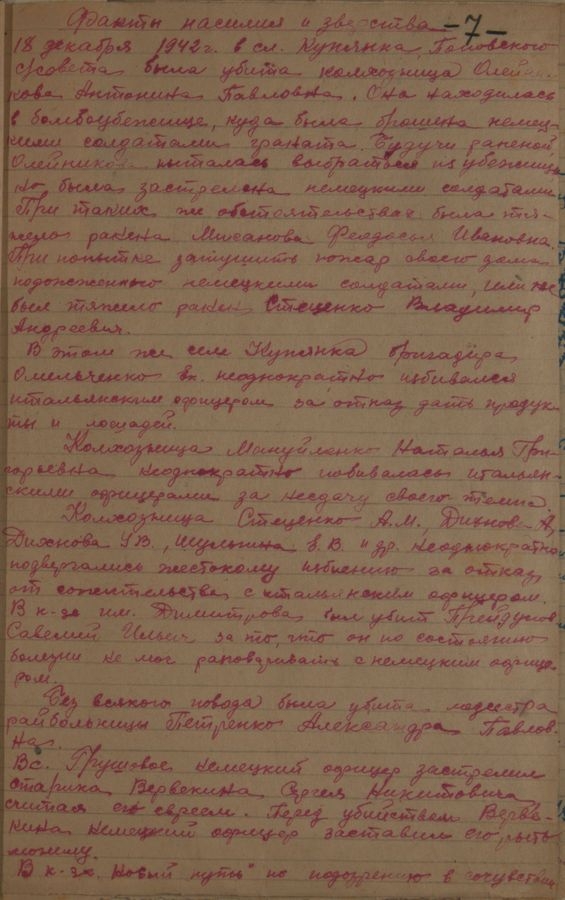 Факты насилия и зверства -7-
18 декабря 1942 г. в сл. Купянка, Поповского
с/совета была убита колхозница Олейни-
кова Антонина Павловна. Она находилась
в бомбоубежище, куда была брошена немец-
кими солдатами граната. Будучи раненой
Олейникова пыталась выбраться из убежища
но была застрелена немецкими солдатами
При таких же обстоятельствах была тя-
жело ранена Феодосья Ивановна.
При попытке затушить пожар своего дома
подожженного немецкими солдатами, ими же
был тяжело ранен Стеценко Владимир
Андреевич.
В этом же селе Купянка бригадира
Омельченко неоднократно избивался
итальянским офицером за отказ дать продук-
ты и лошадей.
Колхозница Мануйленко Наталья Гри-
горьевна неоднократно избивалась итальян-
скими офицерами за несдачу своего
Колхозница Стеценко А.М., Дихнова А,
Дихнова В., Шульгина Е.В. и др. неоднократно
подвергались жестокому избиению за отказ
от сожительства с итальянским офицером.
В к-зе им. Димитрова был убит
Савелий Ильич за то, что он по состоянию
болезни не мог разговаривать с немецким офице-
ром.
Без всякого повода была убита медсестра
райбольницы Петренко Александра Павлов-
на.
В с. Грушовое немецкий офицер застрелил
старика Вервекина Сергея Никитовича
считая его евреем. Перед убийством Верве-
кина немецкий офицер заставил его рыть
могилу.
В к-зе "Новый путь" по подозрению в сочувствии